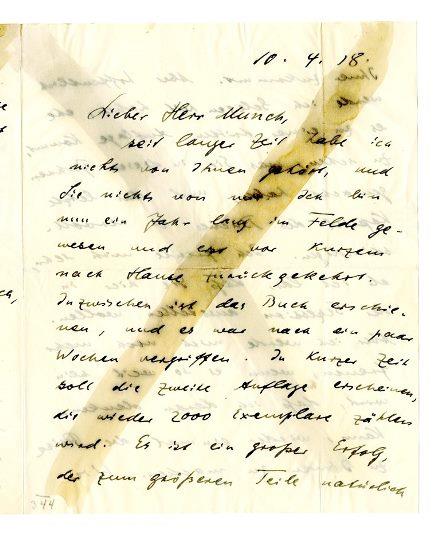 10. 4. 18.
Lieber Herr Munch,
seit langer Zeit habe ich
nichts von Ihnen gehört, und
Sie nichts von mir. Ich bin
nun ein Jahr lang im Felde ge-
wesen und erst vor Kurzem
nach Hause zurückgekehrt.
Inzwischen ist das Buch erschie-
nen, und es war nach ein paar
Wochen vergriffen. In Kurzer Zeit
soll die zweite Auflage erscheinen,
die wieder 2000 Exemplare zählen
wird. Es ist ein großer Erfolg,
der zum größeren Teile natürlich
344